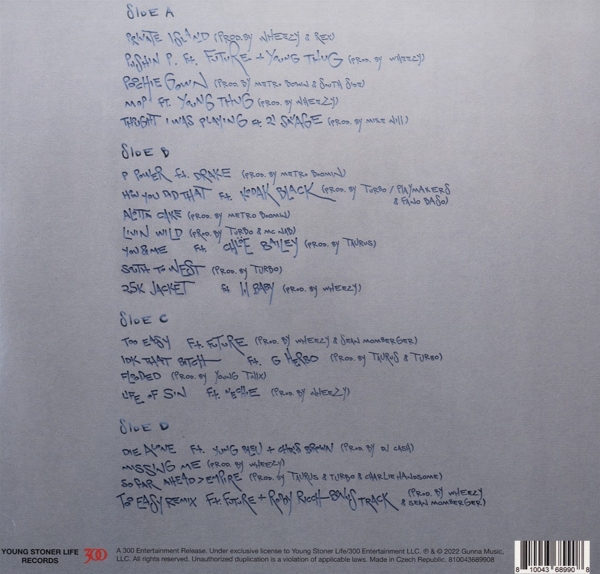 SIDE A
PRIVATE ISLAND (PROD. BY WHEEZY & REX)
PUSHIN P. Ft. FUTURE + YOUNG THUG (PROD. BY WHEEZY)
POOCHIE GOWN (PROD. BY METRO BOOMIN & SOUTH SIDE)
MOP FT. YOUNG THUG (PROD. BY WHEEZY)
THOUGHT I WAS PLAYING Ft. 21 SAVAGE (PROD. BY MIKE WILL)
SIDE B
P POWER ft. DRAKE (PROD. BY METRO BOOMIN)
HOW YOU DID THAT Ft. KODAK BLACK (PROD. BY TURBO / PLAYMAKERS
& FANO BASO)
ALOTTA CAKE (PROD. BY METRO BOOMIN)
LIVIN WILD (PROD. BY TURBO & MC NAB)
YOU & ME Ft. CHLOE BAILEY (PROD. BY TAURUS)
SOUTH TO WEST (PROD. BY TURBO)
25K JACKET ft. lil BABY (PROD. BY WHEEZY)
SIDE C
TOO EASY Ft. FUTURE (PROD. BY WHEEZY & SEAN MOMBERGER)
IDK THAT BITCH Ft. G HERBO (PROD. BY TAURUS & TURBO)
FLOODED (PROD. BY YOUNG)
LIFE OF SIN Ft. NECHIE (PROD. BY WHEEZY)
SIDE D
DIE ALONE Ft. YUNG BLEU + CHRIS BROWN (PROD. BY DJ CASH)
MISSING ME (PROD. BY WHEEZY)
SO FAR AHEAD > EMPIRE (PROD. BY TAURUS & TURBO & CHARLIE HANDSOME)
TOO EASY REMIX Ft. FUTURE + RODDY RICCH - BONUS TRACK (PROD. BY WHEEZY
& SEAN MOMBERGER)
YOUNG STONER LIFE
RECORDS
300
A 300 Entertainment Release. Under exclusive license to Young Stoner Life/300 Entertainment LLC. ℗ & © 2022 Gunna Music,
LLC. All rights reserved. Unauthorized duplication is a violation of applicable laws. Made in Czech Republic. 810043689908
8 10043 68990 8